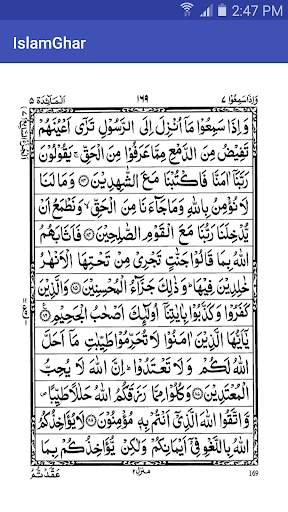 2:47 PM
IslamGhar
وَاِذَا سَمِعُوْا ٧
١٦٩
اَلْمَآئِدَة ٥
وَاِذَا سَمِعُوْا مَآ اُنْزِلَ اِلَى الرَّسُوْلِ تَرٰٓى اَعْيُنَهُمْ
تَفِيْضُ مِنَ الدَّمْعِ مِمَّا عَرَفُوْا مِنَ الْحَقِّ ۚ يَقُوْلُوْنَ
رَبَّنَآ اٰمَنَّا فَاكْتُبْنَا مَعَ الشّٰهِدِيْنَ ﴿٨٣﴾ وَمَا لَنَا
لَا نُؤْمِنُ بِاللّٰهِ وَمَا جَآءَنَا مِنَ الْحَقِّ ۙ وَنَطْمَعُ اَنْ
يُّدْخِلَنَا رَبُّنَا مَعَ الْقَوْمِ الصّٰلِحِيْنَ ﴿٨٤﴾ فَاَثَابَهُمُ
اللّٰهُ بِمَا قَالُوْا جَنّٰتٍ تَجْرِيْ مِنْ تَحْتِهَا الْاَنْهٰرُ
خٰلِدِيْنَ فِيْهَا ؕ وَذٰلِكَ جَزَآءُ الْمُحْسِنِيْنَ ﴿٨٥﴾ وَالَّذِيْنَ
كَفَرُوْا وَكَذَّبُوْا بِاٰيٰتِنَآ اُولٰٓئِكَ اَصْحٰبُ الْجَحِيْمِ ﴿٨٦﴾
يٰٓاَيُّهَا الَّذِيْنَ اٰمَنُوْا لَا تُحَرِّمُوْا طَيِّبٰتِ مَآ اَحَلَّ
اللّٰهُ لَكُمْ وَلَا تَعْتَدُوْا ؕ اِنَّ اللّٰهَ لَا يُحِبُّ
الْمُعْتَدِيْنَ ﴿٨٧﴾ وَكُلُوْا مِمَّا رَزَقَكُمُ اللّٰهُ حَلٰلًا طَيِّبًا ۪
وَّاتَّقُوا اللّٰهَ الَّذِيْٓ اَنْتُمْ بِهٖ مُؤْمِنُوْنَ ﴿٨٨﴾ لَا يُؤَاخِذُكُمُ
اللّٰهُ بِاللَّغْوِ فِيْٓ اَيْمَانِكُمْ وَلٰكِنْ يُّؤَاخِذُكُمْ بِمَا
169
منزل ٢
عَقَّدْتُّمُ